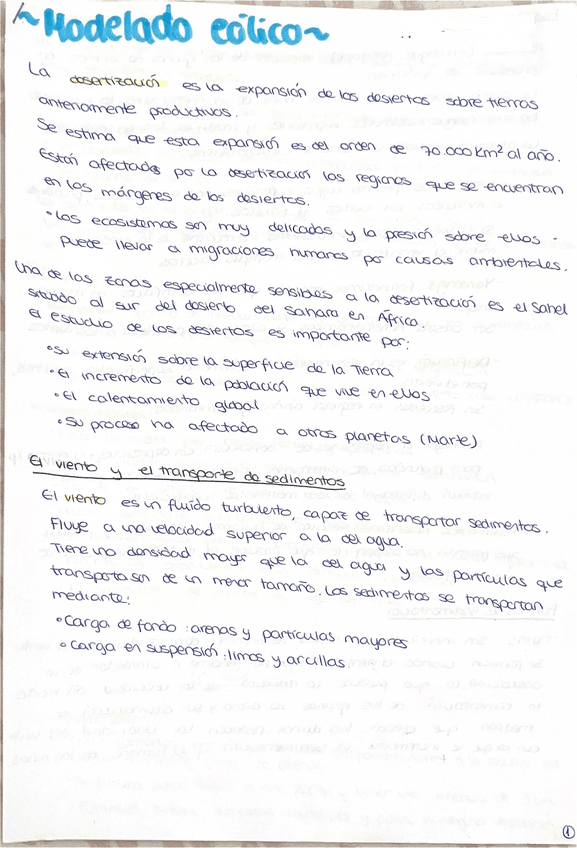 ~Modelado eólico~
La desertización es la expansión de los desiertos sobre tierras
anteriormente productivas.
Se estima que esta expansión es del orden de 70.000 Km² al año.
Están afectadas por la desertización las regiones que se encuentran
en los márgenes de los desiertos.
•Los ecosistemas son muy delicados y la presión sobre ellos -
puede llevar a migraciones humanas por causas ambientales.
Una de las zonas especialmente sensibles a la desertización es el Sahel
situado al sur del desierto del Sahara en África.
El estudio de los desiertos es importante por:
•Su extensión sobre la superficie de la Tierra
•El incremento de la población que vive en ellos
•El calentamiento global
•Su proceso ha afectado a otros planetas (Marte)
El viento y el transporte de sedimentos
El viento es un fluido turbulento, capaz de transportar sedimentos.
Fluye a una velocidad superior a la del agua.
Tiene una densidad mayor que la del agua y las partículas que
transporta son de un menor tamaño. Los sedimentos se transportan
mediante:
•Carga de fondo: arenas y partículas mayores
•Carga en suspensión: limos y arcillas
1